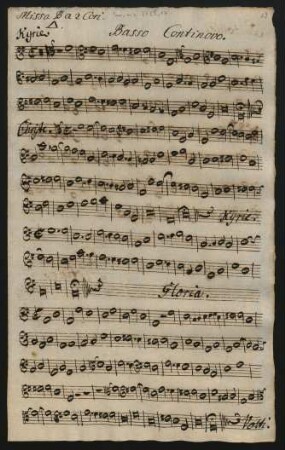 Missa Da 2 Cori
Basso Continovo.
Kyrie
Christe.
Kyrie.
Gloria.
Volti